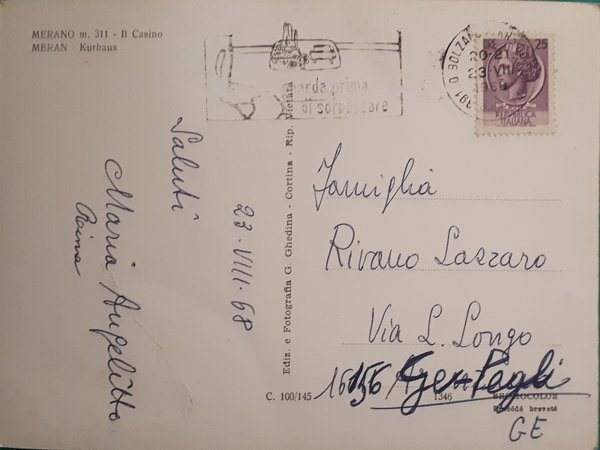 MERANO m. 311 - Il Casino
MERAN Kurhaus
Guarda prima
di sorpassare
BOLZANO
20-21
23 VIII
1968
25
REPUBBLICA
ITALIANA
Saluti
Maria Angelitto
23-VIII-68
Ediz. e Fotografia G. Ghedina - Cortina - Rip. Vietata
Famiglia
Rivano Lazzaro
Via L. Longo
16156 Pegli
GE
C. 100/145
1346
BROMOCOLOR
Procédé breveté